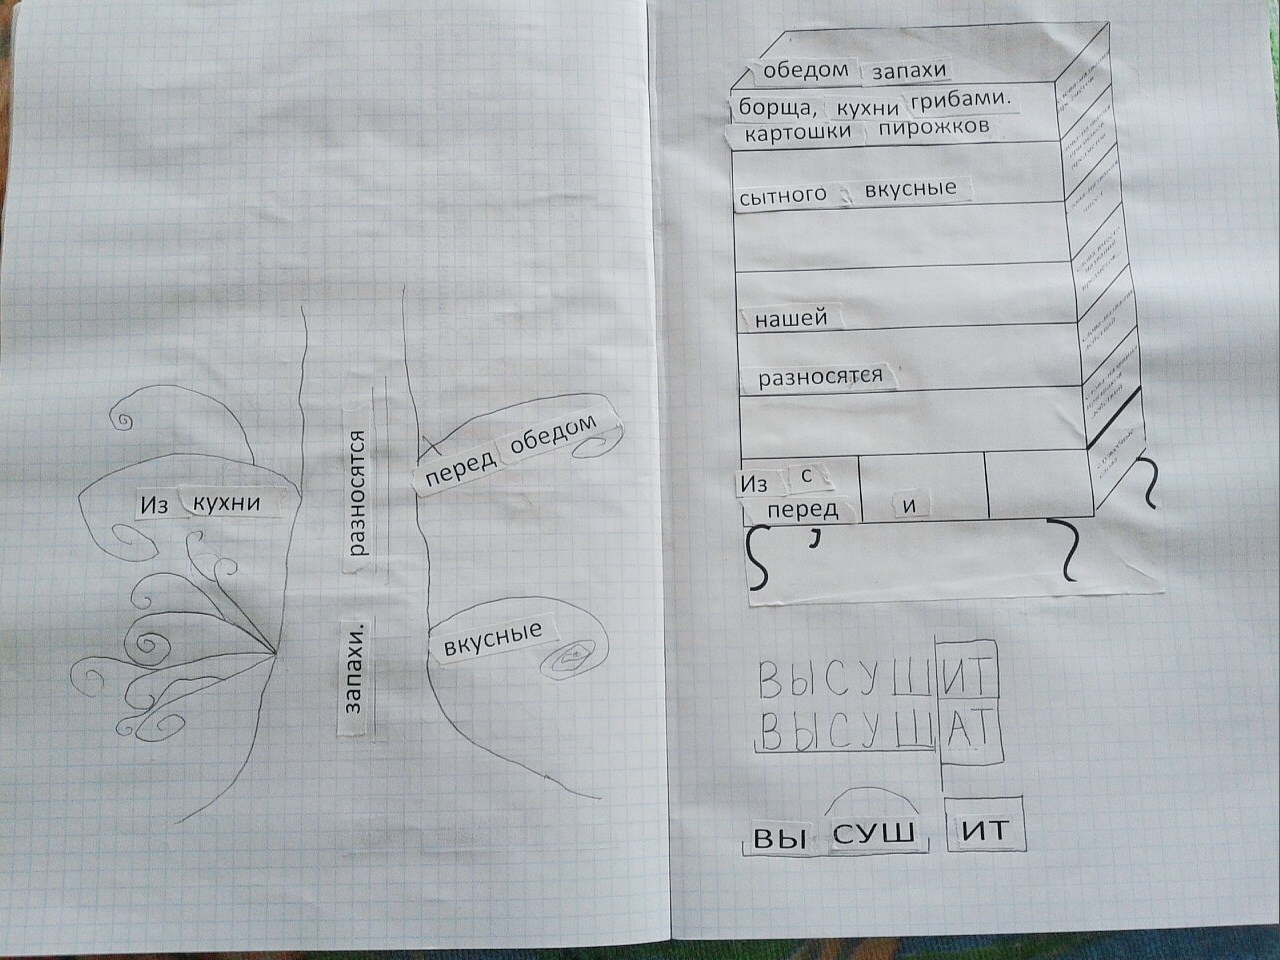 перед обедом
Из кухни
разносятся
запахи.
вкусные
обедом запахи
борща, кухни грибами.
картошки пирожков
сытного вкусные
нашей
разносятся
Из с
перед и
,
ВЫСУШИТ
ВЫСУШАТ
ВЫ СУШ ИТ